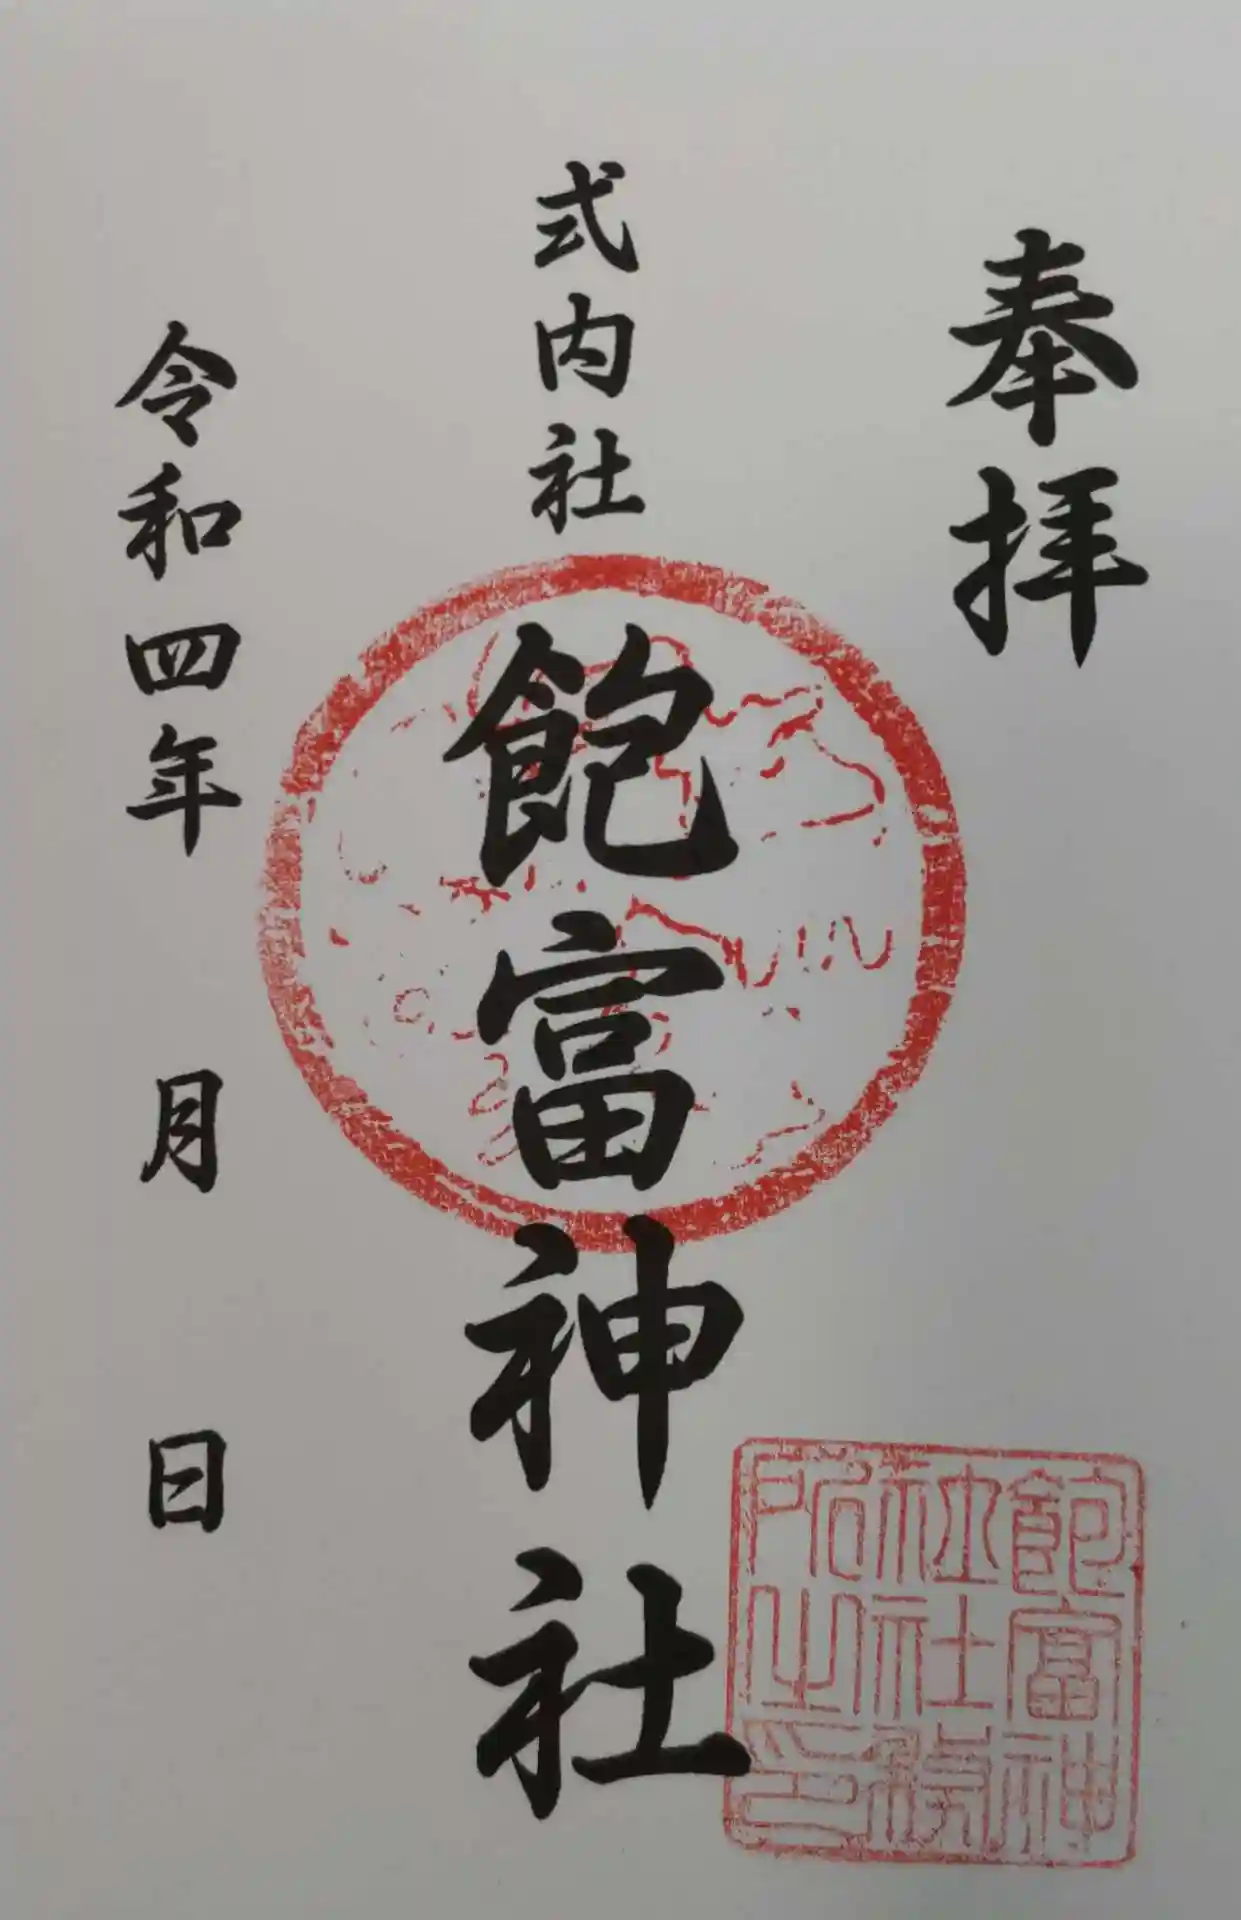 奉拝
式内社
飽富神社
令和四年 月 日
飽富神
社社務
所之印